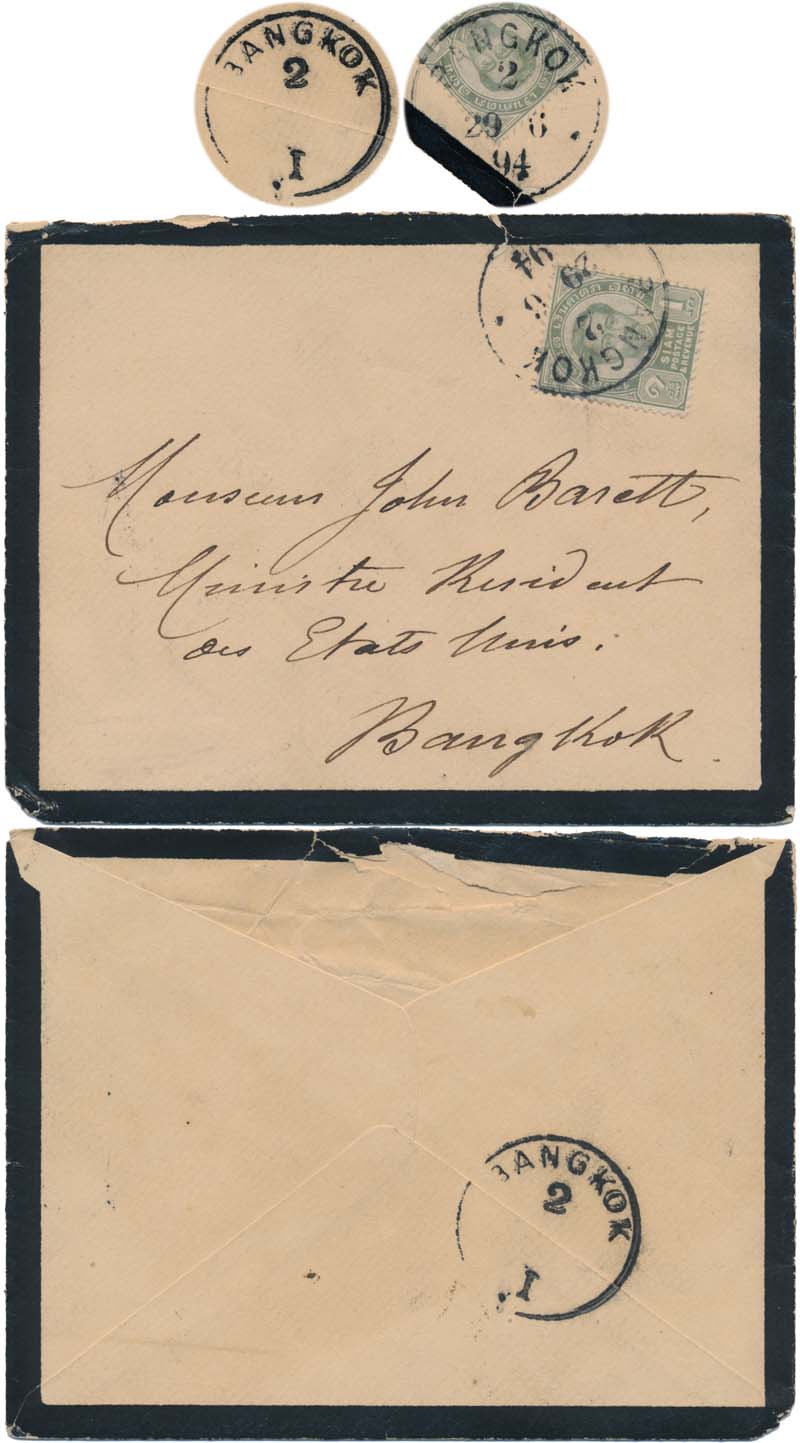 BANGKOK
2
I
BANGKOK
2
29 6
94
94
29
6
2
NGKOK
1
SIAM
POSTAGE
& REVENUE
๑
Monsieur John Barett,
Ministre Resident
des Etats Unis.
BangKok.
BANGKOK
2
I